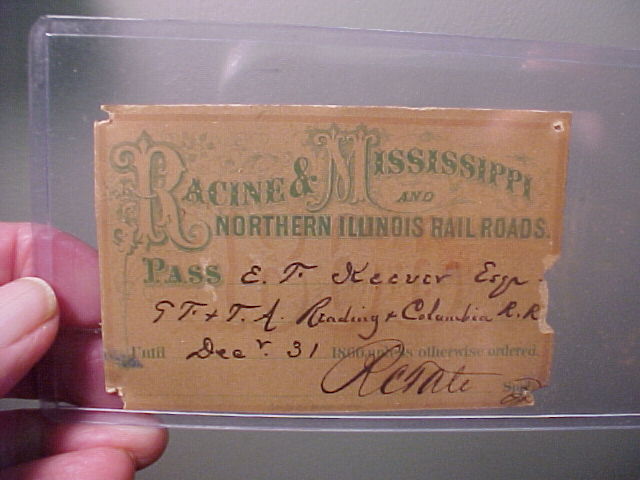 RACINE & MISSISSIPPI
AND
NORTHERN ILLINOIS RAIL ROADS.
PASS E. F. Keever Esqr
G F. & T. A. Reading & Columbia R.R
Until Decr. 31 1860 unless otherwise ordered.
R C Tate Supt